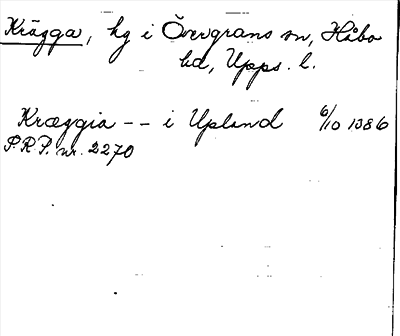 Krägga, hg i Övergrans sn, Håbo
hd, Upps. l.
Kræggia -- i Upland 6/10 1386
P.R.P. nr. 2270